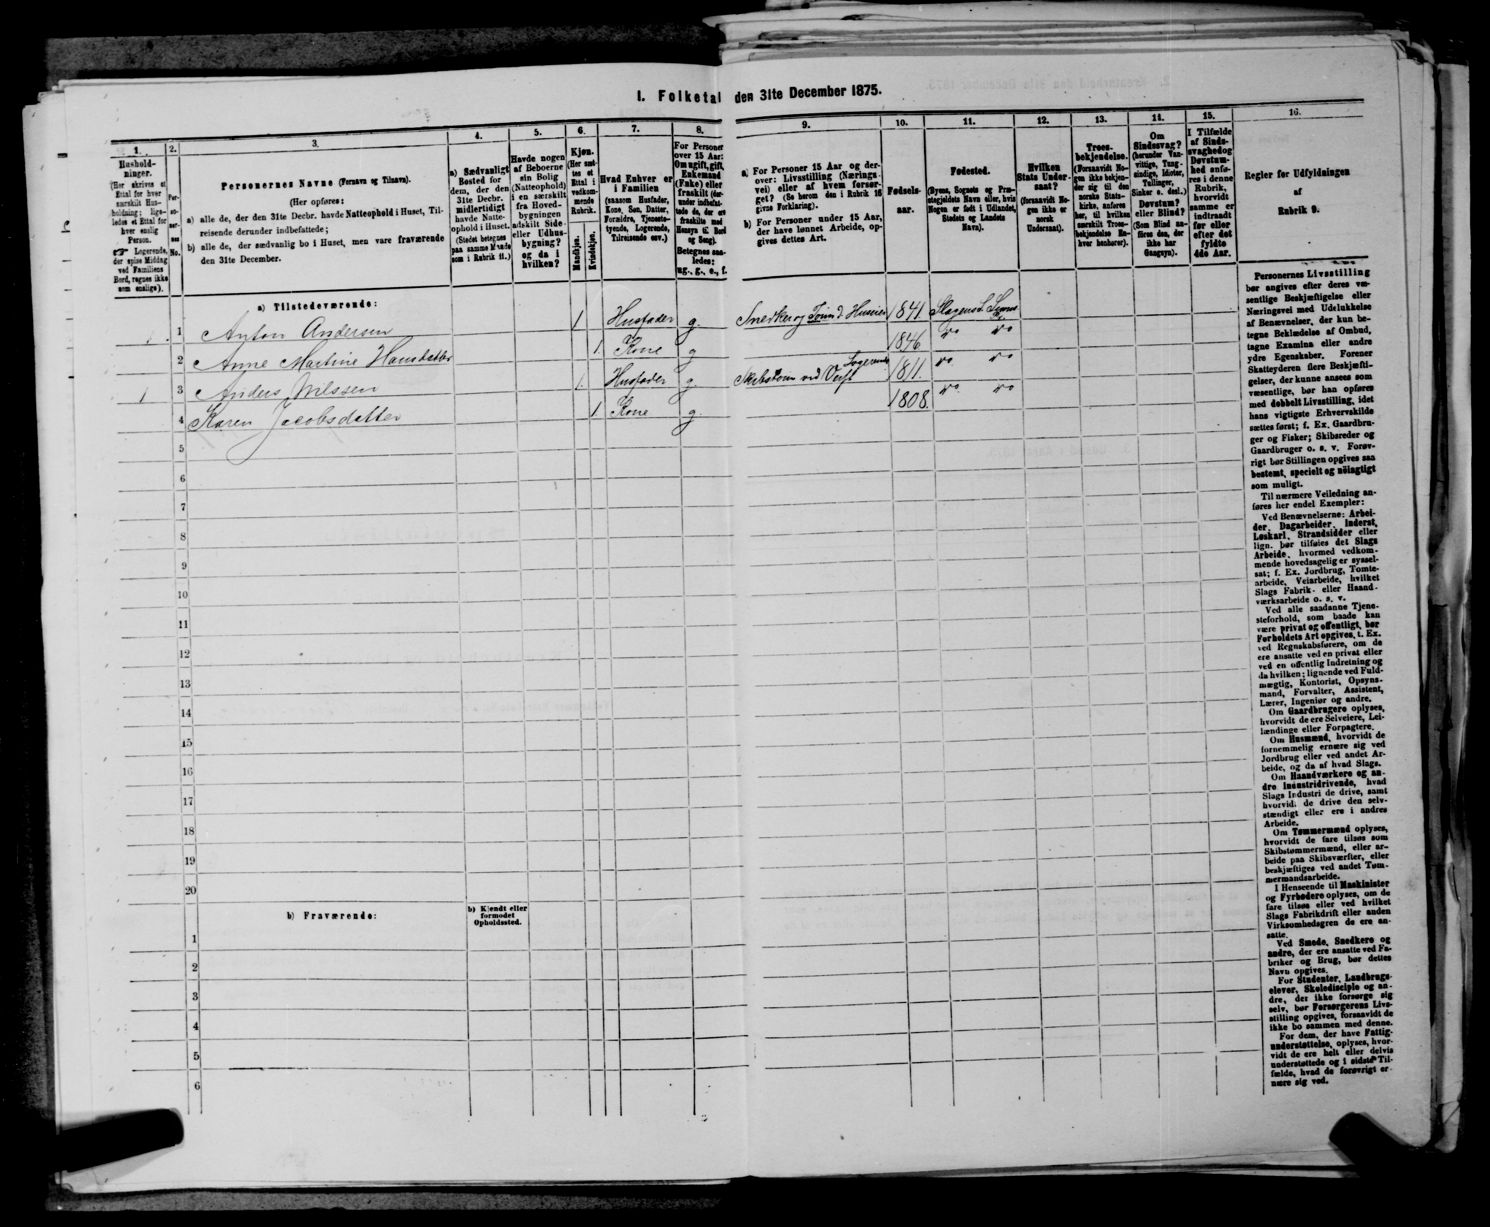 I. Folketal den 31te December 1875.
1.
2.
3.
4.
5.
6.
7.
8.
9.
10.
11.
12.
13.
14.
15.
16.
Hushold-
ninger.
(Her skrives et
Ettal for hver
særskilt Hus-
holdning; lige-
ledes et Ettal for
hver enslig
Person.
☞ Logerende,
der spise Middag
ved Familiens
Bord, regnes ikke
som enslige).
Per-
so-
ner-
nes
No.
Personernes Navne (Fornavn og Tilnavn).
(Her opføres:
a) alle de, der den 31te Decbr. havde Natteophold i Huset, Til-
reisende derunder indbefattede;
b) alle de, der sædvanlig bo i Huset, men vare fraværende
den 31te December.
a) Sædvanligt
Bosted for
dem, der den
31te Decbr.
midlertidigt
havde Natte-
ophold i Huset.
(Stedet betegnes
paa samme Maade
som i Rubrik 11.)
Havde nogen
af Beboerne
sin Bolig
(Natteophold)
i en særskilt
fra Hoved-
bygningen
adskilt Side-
eller Udhus-
bygning?
og da i
hvilken?
Kjøn.
(Her sæt-
tes et
Ettal i
vedkom-
mende
Rubrik.
Mandkjøn.
Kvindekjøn.
Hvad Enhver er
i Familien
(saasom Husfader,
Kone, Søn, Datter,
Forældre, Tjeneste-
tyende, Logerende,
Tilreisende osv.)
For Personer
over 15 Aar:
Om ugift, gift,
Enkemand
(Enke) eller
fraskilt (der-
under indbefat-
tede de, der ere
fraskilte med
Hensyn til Bord
og Seng).
Betegnes saa-
ledes:
ug., g., e., f.
a) For Personer 15 Aar og der-
over: Livsstilling (Nærings-
vei) eller af hvem forsør-
get? (Se herom den i Rubrik 16
givne Forklaring).
b) For Personer under 15 Aar,
der have lønnet Arbeide, op-
gives dettes Art.
Fødsels-
aar.
Fødested.
(Byens, Sognets og Præ-
stegjældets Navn eller, hvis
Nogen er født i Udlandet,
Stedets og Landets
Navn).
Hvilken
Stats Under-
saat?
(forsaavidt No-
gen ikke er
norsk
Undersaat).
Troes-
bekjendelse.
(Forsaavidt No-
gen ikke bekjen-
der sig til den
norske Stats-
kirke, anføres
her, til hvilken
særskilt Troes-
bekjendelse En-
hver henhører).
Om
Sindssvag?
(herunder Van-
vittige, Tung-
sindige, Idioter,
Tullinger,
Sinker o. desl.)
Døvstum?
eller Blind?
(Som Blind an-
føres den, der
ikke har
Gangsyn).
I Tilfælde
af Sinds-
svaghed og
Døvstum-
hed anfø-
res i denne
Rubrik,
hvorvidt
samme er
indtraadt
før eller
efter det
fyldte
4de Aar.
Regler for Udfyldningen
af
Rubrik 9.
a) Tilstedeværende:
1 1 Anton Andersen 1 Husfader g. Snedker og Huseier 1841
2 Anne Martine Hansdatter 1 Kone g 1846 do do
1 3 Anders Nilssen 1 Husfader g. Logerende 1811 do do
4 Karen Jacobsdatter 1 Kone g. 1808 do do
5
6
7
8
9
10
11
12
13
14
15
16
17
18
19
20
b) Fraværende:
b) Kjendt eller
formodet
Opholdssted.
1
2
3
4
5
6
Personernes Livsstilling
bør angives efter deres væ-
sentlige Beskjæftigelse eller
Næringsvei med Udelukkelse
af Benævnelser, der kun be-
tegne Beklædelse af Ombud,
tagne Examina eller andre
ydre Egenskaber. Forener
Skatteyderen flere Beskjæfti-
gelser, der kunne ansees som
væsentlige, bør han opføres
med dobbelt Livsstilling, idet
hans vigtigste Erhvervskilde
sættes først; f. Ex. Gaardbru-
ger og Fisker; Skibsreder og
Gaardbruger o. s. v. Forøv-
rigt bør Stillingen opgives saa
bestemt, specielt og nøiagtigt
som muligt.
Til nærmere Veiledning an-
føres her endel Exempler:
Ved Benævnelserne: Arbei-
der, Dagarbeider, Inderst,
Løskarl, Strandsidder eller
lign. bør tilføies det Slags
Arbeide, hvormed vedkom-
mende hovedsagelig er syssel-
sat; f. Ex. Jordbrug, Tomte-
arbeide, Veiarbeide, hvilket
Slags Fabrik- eller Haand-
værksarbeide o. s. v.
Ved alle saadanne Tjene-
steforhold, som baade kan
være privat og offentligt, bør
Forholdets Art opgives, t. Ex.
ved Regnskabsførere, om de
ere ansatte ved en privat eller
ved en offentlig Indretning og
da hvilken; lignende ved Fuld-
mægtig, Kontorist, Opsyns-
mand, Forvalter, Assistent,
Lærer, Ingeniør og andre.
Om Gaardbrugere oplyses,
hvorvidt de ere Selveiere, Lei-
lændinge eller Forpagtere.
Om Husmænd, hvorvidt de
fornemmelig ernære sig ved
Jordbrug eller ved andet Ar-
beide, og da af hvad Slags.
Om Haandværkere og an-
dre Industridrivende, hvad
Slags Industri de drive, samt
hvorvidt de drive den selv-
stændigt eller ere i andres
Arbeide.
Om Tømmermænd oplyses,
hvorvidt de fare tilsøs som
Skibstømmermænd, eller ar-
beide paa Skibsværfter, eller
beskjæftiges ved andet Tøm-
mermandsarbeide.
I Henseende til Maskinister
og Fyrbødere oplyses, om de
fare tilsøs eller ved hvilket
Slags Fabrikdrift eller anden
Virksomhedsgren de ere an-
satte.
Ved Smede, Snedkere og
andre, der ere ansatte ved Fa-
briker og Brug, bør dettes
Navn opgives.
For Studenter, Landbrugs-
elever, Skoledisciple og an-
dre, der ikke forsørge sig
selv, bør Forsørgerens Livs-
stilling opgives, forsaavidt de
ikke bo sammen med denne.
For dem, der have Fattig-
understøttelse, oplyses, hvor-
vidt de ere helt eller delvis
understøttede og i sidste Til-
fælde, hvad de forøvrigt er-
nære sig ved.